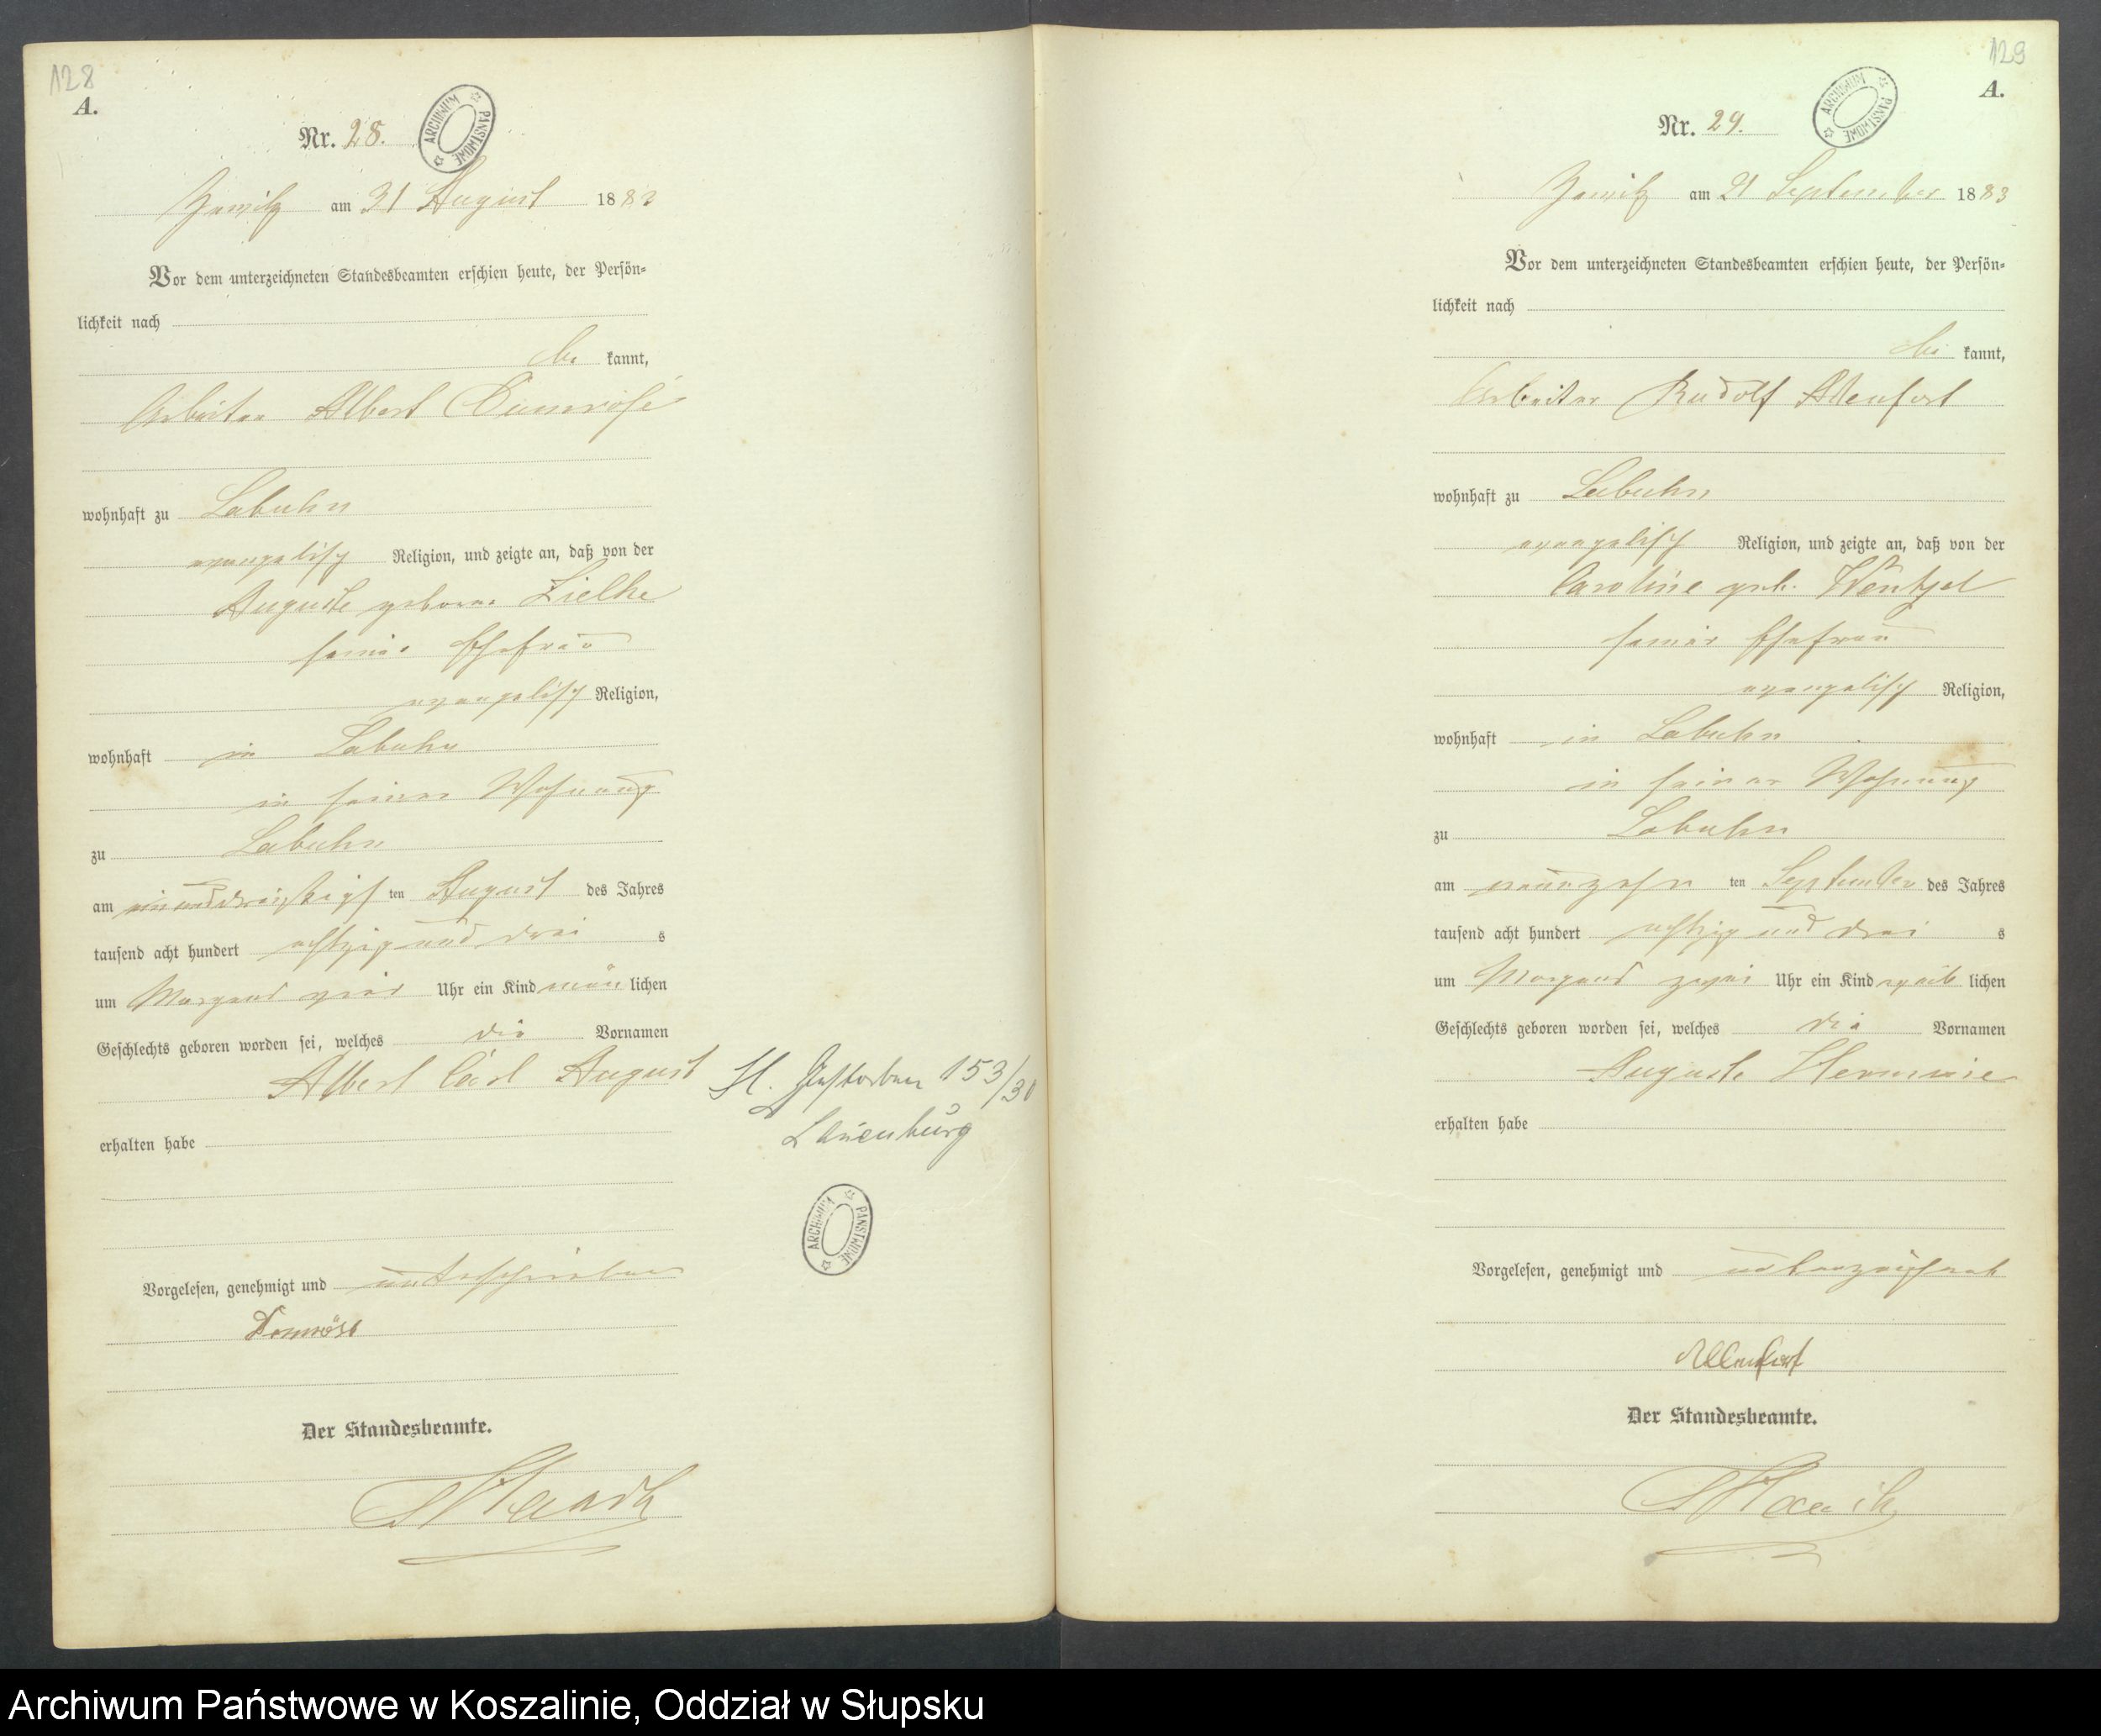 128
A.
Nr. 28.
ARCHIWUM PAŃSTWOWE
Zewitz am 31 August 1883
Vor dem unterzeichneten Standesbeamten erschien heute, der Persön-
lichkeit nach
be kannt,
Arbeiter Albert Dumröse
wohnhaft zu Labuhn
evangelisch Religion, und zeigte an, daß von der
Auguste geborne Zielke
seiner Ehefrau
evangelisch Religion,
wohnhaft in Labuhn
in seiner Wohnung
zu Labuhn
am einunddreißigsten August des Jahres
tausend acht hundert achtzig und drei s
um Morgens vier Uhr ein Kind män lichen
Geschlechts geboren worden sei, welches die Vornamen
Albert Carl August
erhalten habe
Vorgelesen, genehmigt und unterschrieben
Domröse
Der Standesbeamte.
St. Gestorben 153/30
Lauenburg
ARCHIWUM PAŃSTWOWE
129
A.
Nr. 29.
ARCHIWUM PAŃSTWOWE
Zewitz am 21 September 1883
Vor dem unterzeichneten Standesbeamten erschien heute, der Persön-
lichkeit nach
be kannt,
Arbeiter Rudolf Altenfort
wohnhaft zu Labuhn
evangelisch Religion, und zeigte an, daß von der
Caroline geb. Wentzel
seiner Ehefrau
evangelisch Religion,
wohnhaft in Labuhn
in seiner Wohnung
zu Labuhn
am neunzehn ten September des Jahres
tausend acht hundert achtzig und drei s
um Morgens zwei Uhr ein Kind weib lichen
Geschlechts geboren worden sei, welches die Vornamen
Auguste Hermine
erhalten habe
Vorgelesen, genehmigt und unterzeichnet
Der Standesbeamte.
Archiwum Państwowe w Koszalinie, Oddział w Słupsku